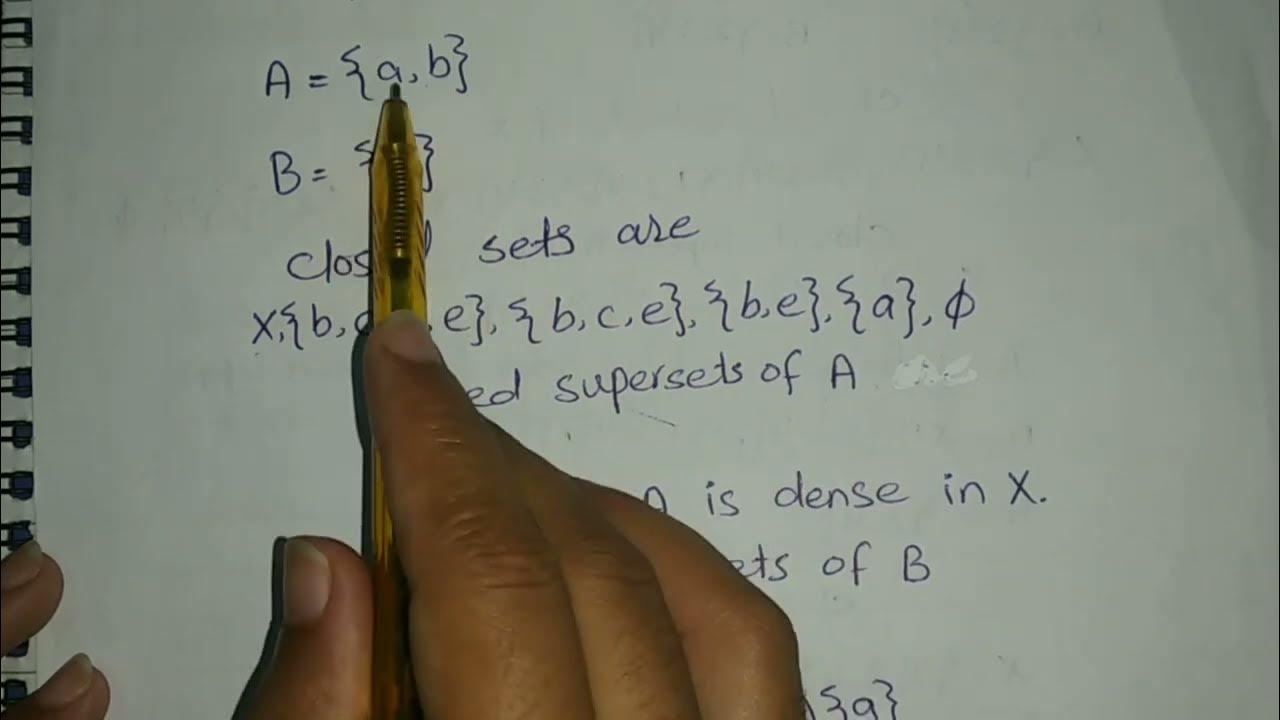 A = {a, b}
B = { }
sets are
X, {b, , e}, {b, c, e}, {b, e}, {a}, ϕ
supersets of A
A is dense in X.
of B
{a}